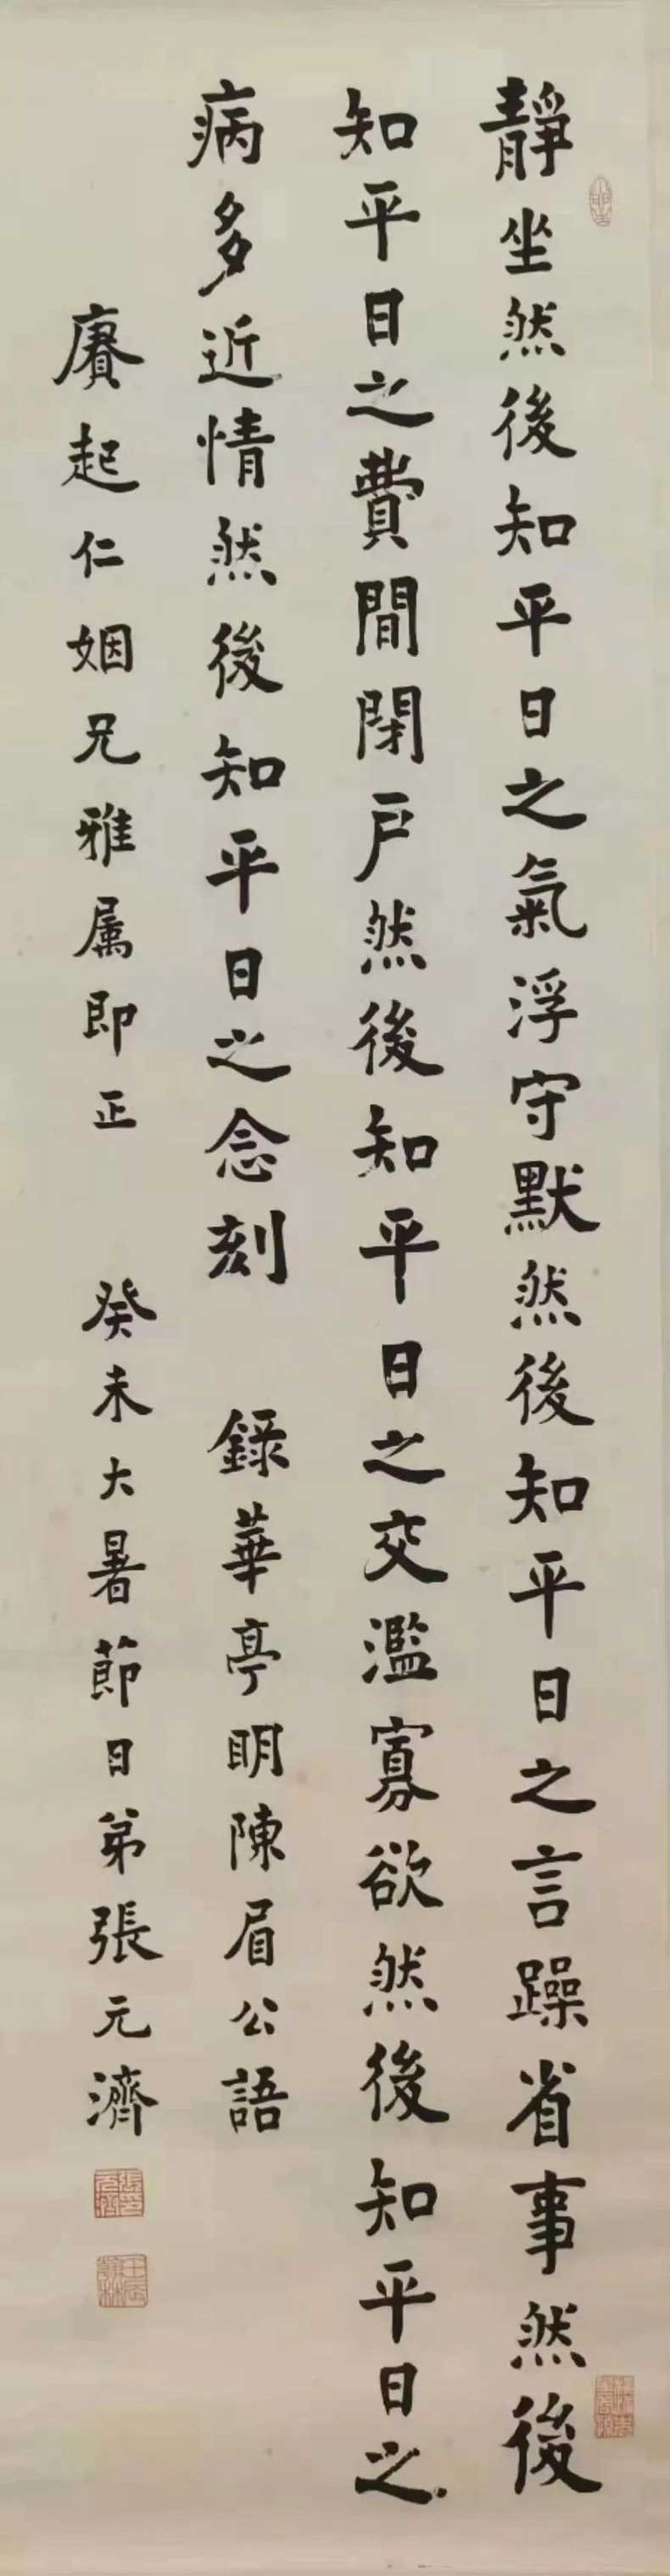 靜坐然後知平日之氣浮守默然後知平日之言躁省事然後
知平日之費閒閉户然後知平日之交濫寡欲然後知平日之
病多近情然後知平日之念刻 錄華亭明陳眉公語
賡起仁姻兄雅属即正 癸未大暑節日弟張元濟